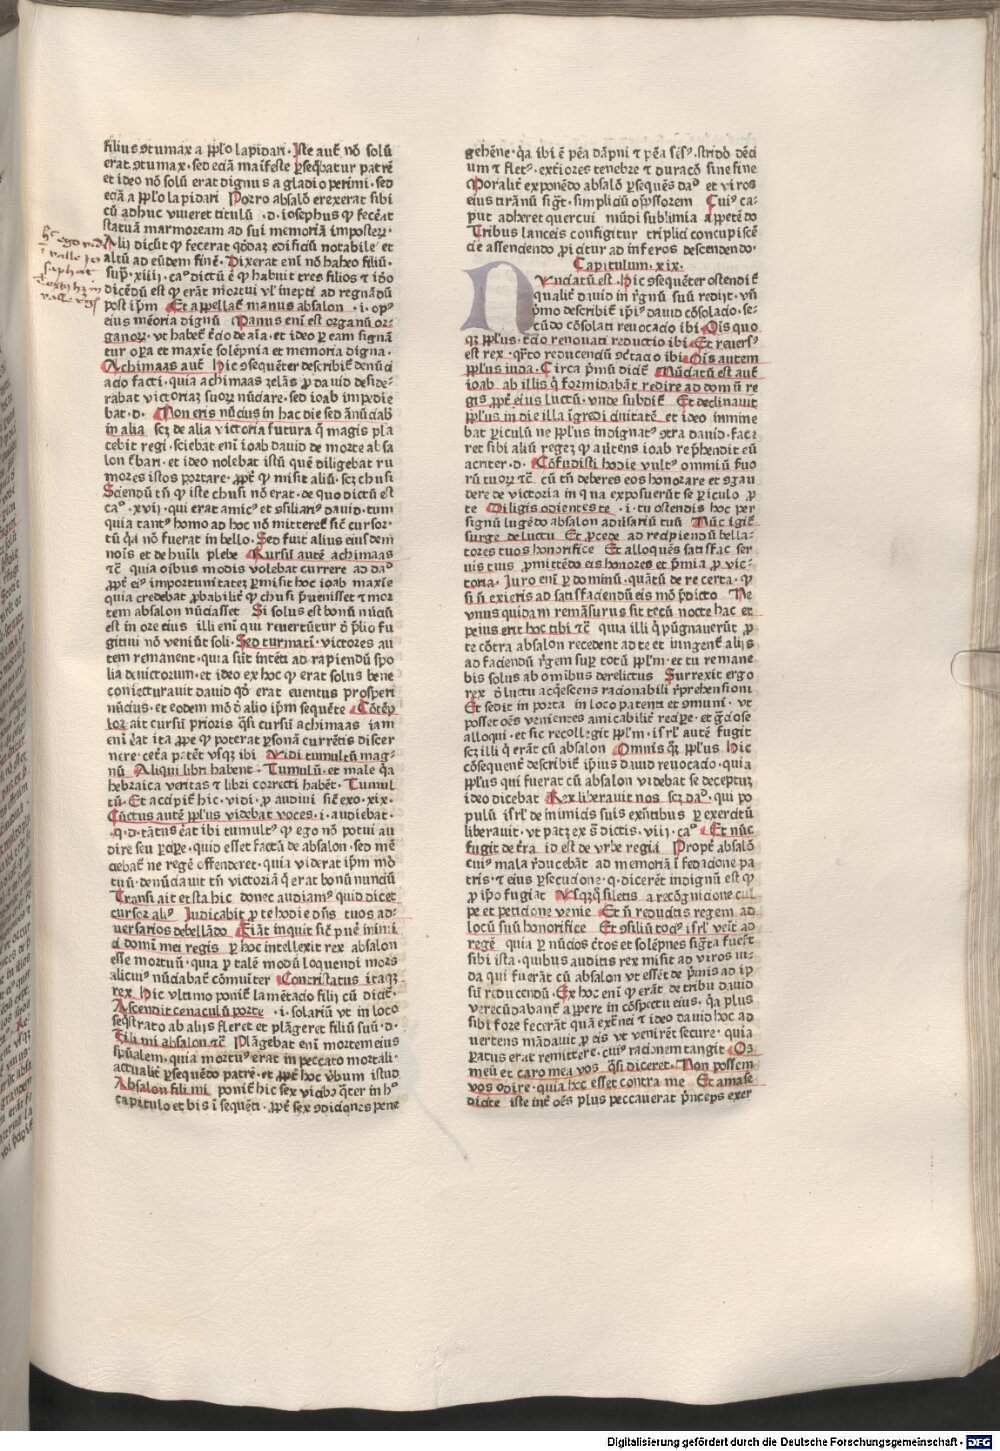 filius ꝯtumax a ppl'o lapidari. Iste aut̄ nō solū
erat ꝯtumax. sed eciā maīfeste ꝑseq̄batur patrē
et ideo nō solū erat dignus a gladio perimi. sed
eciā a ppl'o lapidari Porro absalō erexerat sibi
cū adhuc viueret titulū .d. iosephus ꝙ fecerāt
statuā marmoream ad sui memoriā imposterꝝ.
Alij dicūt ꝙ fecerat qōdaꝫ edificiū notabile et
altū ad eūdem finē. Dixerat enī nō habeo filiū.
sup̄. xiiij. cao dictū ē ꝙ habuit tres filios ⁊ iō
dicēdū est ꝙ erāt mortui vl' inepti ad regnādū
post ip̄m Et appellat̄ manus absalon .i. opꝰ
eius memoria dignū Manus enī est organū or-
ganoꝝ. vt habet̄ tcio de aīa. et ideo ꝑ eam signā
tur opa et maxīe solēpnia et memoria digna.
Achimaas aut̄ Hic ꝯsequēter describit̄ denūci
acio facti. quia achimaas zelās ꝓ dauid deside-
rabat victoriaꝫ suoꝝ nūciare. sed ioab impedie
bat. d. Non eris nūcius in hac die sed ānūciab'
in alia scꝫ de alia victoria futura q̄ magis pla
cebit regi. sciebat enī ioab dauid de morte absa
lon tbari. et ideo nolebat istū quē diligebat ru
mores istos portare. ꝓpt̄ ꝙ misit aliū. scꝫ chusi
Sciendū tn̄ ꝙ iste chusi nō erat. de quo dictū est
cao. xvij. qui erat amicꝰ et ꝯsiliariꝰ dauid. tum
quia tantꝰ homo ad hoc nō mitteret̄ sic̄ cursor.
tū q̄a nō fuerat in bello. Sed fuit alius eiusdem
nois et de huīli plebe Rursū autē achimaas
⁊c̄ quia oībus modis volebat currere ad dad
ꝓpt̄ eiꝰ importunitateꝫ ꝑmisit hoc ioab maxīe
quia credebat ꝓbabilit̄ ꝙ chusi p̄uenisset ⁊ mor
tem absalon nūciasset Si solus est bonū nūciū
est in ore eius illi enī qui reuertūtur d̄ p̄lio fu
gitiui nō veniūt soli. Sed turmati. victores au
tem remanent. quia sūt intēti ad rapiendū spo
lia deuictorum. et ideo ex hoc ꝙ erat solus bene
coniecturauit dauid qd̄ erat euentus prosperi
nūcius. et eodem mō d̄ alio ip̄m sequēte Cōtēp
lor ait cursū prioris q̄si cursū achimaas iam
enī erat ita ꝓpe ꝙ poterat ꝑsonā currētis discer
nere. ceta patēt vsqꝫ ibi Vidi tumultū mag-
nū Aliqui libri habent. Tumulū. et male q̄a
hebraica veritas ⁊ libri correcti habēt. Tumul
tū. Et accipit̄ hic. vidi. ꝓ audiui sic̄ exo. xix.
Cūctus autē ppl'us videbat voces. i. audiebat.
.q.d. tātus erat ibi tumultꝰ ꝙ ego nō potui au
dire seu ꝑcipe. quid esset factū de absalon. sed mē
ciebat̄ ne regē offenderet. quia viderat ip̄m mō
tuū. denūciauit tn̄ victoriā q̄ erat bonū nunciū
Transi ait et sta hic donec audiamꝰ quid dicet
cursor aliꝰ Iudicabit ꝓ te hodie dn̄s tuos ad-
versarios debellādo Fiāt inquit sic̄ puē inimi
ci domī mei regis ꝑ hoc intellexit rex absalon
esse mortuū. quia ꝑ talē modū loquendi mors
alicuiꝰ nūciabat̄ cōmūiter Contristatus itaqꝫ
rex Hic vltimo ponit̄ lamētacio filij cū dicit̄.
Ascendit cenaculū porte .i. solariū vt in loco
seq̄strato ab alijs fleret et plāgeret filiū suū. d.
Fili mi absalon ⁊c̄ Plāgebat enī mortem eius
spūalem. quia mortuꝰ erat in peccato mortali.
actualit̄ ꝑsequēdo patrē. et ꝓpt̄ hoc v̄bum istud
Absalon fili mi ponit̄ hic sex vicibꝫ q̄ter in ho
capitulo et bis ī sequēti. ꝓpt̄ sex ꝯdiciones pene
gehēne. q̄a ibi ē pēa dāpni ⁊ pēa sēsꝰ. stridō dēci
um ⁊ fletꝰ. exteriores tenebre ⁊ duracō sine fine
Moralit̄ exponēdo absalō ꝑsequēs dad et viros
eius tirānū sigt̄. simpliciū opp̄ssorem Cuiꝰ ca-
put adheret quercui mūdi sublimia appetēdo
Tribus lanceis configitur triplici concupiscē
cie assenciendo ꝓicitur ad inferos descendendo.
Capitulum. xix.
Nunciatū est. Hic ꝯsequēter ostendit̄
qualit̄ dauid in rgnū suū redijt. vn̄
p̄mo describit̄ ip̄iꝰ dauid cōsolacio. se-
cūdo cōsolati reuocacio ibi Ois quo
qꝫ ppl'us. tcio renouati reductio ibi Et reuersꝰ
est rex. q̄rto reducendū ꝯtētacio ibi Ois autem
ppl'us iuda. Circa p̄mū dicit̄ Nūciatū est aut̄
ioab ab illis q̄ formidabāt redire ad domū re
gis ꝓpt̄ eius luctū. vnde subdit̄ Et declinauit
ppl'us in die illa īgredi ciuitatē et ideo immine
bat ꝑiculū ne ppl'us indignatꝰ ꝯtra dauid. face
ret sibi aliū regeꝫ ꝙ attēns ioab rep̄hendit eū
acriter. d. Cōfudisti hodie vultꝰ omniū ẜuo
rū tuoꝝ ⁊c̄ cū tn̄ deberes eos honorare et ꝯgau
dere de victoria in qua exposuerūt se ꝑiculo ꝓ
te Diligis odientes te .i. tu ostendis hoc per
signū lugēdo absalon adūsariū tuū Nūc igit̄
surge de luctu Et ꝓcede ad recipiendū bella-
tores tuos honorifice Et alloquēs satisfac ser
uis tuis ꝓmittēdo eis honores et p̄mia ꝓ vic-
toria. Iuro enī ꝑ dominū. quātū de re certa. ꝙ
si n̄ exieris ad satisfaciendū eis mō p̄dicto Ne
vnus quidam remāsurus sit tecū nocte hac et
peius erit hoc tibi ⁊c̄ quia illi q̄ pūgnauerūt ꝓ
te cōtra absalon recedent ad te et iungent̄ alijs
ad faciendū r̄gem suꝑ totū ppl'm. et tu remane
bis solus ab omībus derelictus Surrexit ergo
rex d̄ luctu acq̄escens racionabili r̄prehensioni
Et sedit in porta in loco patenti et ꝯmuni. vt
posset oēs venientes amicabilit̄ reciꝑe. et gciose
alloqui. et sic recollegit ppl'm. isrl' autē fugit
scꝫ illi q̄ erāt cū absalon Omnis qꝫ ppl'us Hic
cōsequent̄ describit̄ ip̄ius dauid reuocacio. quia
ppl'us qui fuerat cū absalon videbat se deceptuꝫ
ideo dicebat Rex liberauit nos scꝫ dad. qui po
pulū isrl' de inimicis suis exn̄tibus ꝑ exercitū
liberauit. vt patꝫ ex s̄ dictis. viij. cao Et nūc
fugit de tra id est de vrbe regia Propt̄ absalō
cuiꝰ mala r̄ducebāt ad memoriā ī fedacione pa
tris. ⁊ eius ꝑsecucione. q. dicerēt indignū est ꝙ
ꝓ ip̄o fugiat Vsqꝙ siletis a recōgnicione cul
pe et peticione venie Et n̄ reducitis regem ad
locū suū honorifice Et ꝯsiliū tociꝰ isrl' venit̄ ad
regē quia ꝑ nūcios ctos et solēpnes sigta fuerūt
sibi ista. quibus auditis rex misit ad viros iu-
da qui fuerāt cū absalon vt essēt de p̄mis ad ip
sū reducendū. Ex hoc enī ꝙ erāt de tribu dauid
verecūdabant̄ appere in cōspectu eius. q̄a plus
sibi fore fecerāt quā extnei ⁊ ideo dauid hoc ad
uertens mādauit ꝓ eis vt venirēt secure. quia
ꝑatus erat remittere. cuiꝰ racionem tangit Os
meū et caro mea vos q̄si diceret. Non possem
vos odire. quia hoc esset contra me Et amase
dicite iste int̄ oēs plus peccauerat p̄nceps exer
Digitalisierung gefördert durch die Deutsche Forschungsgemeinschaft - DFG